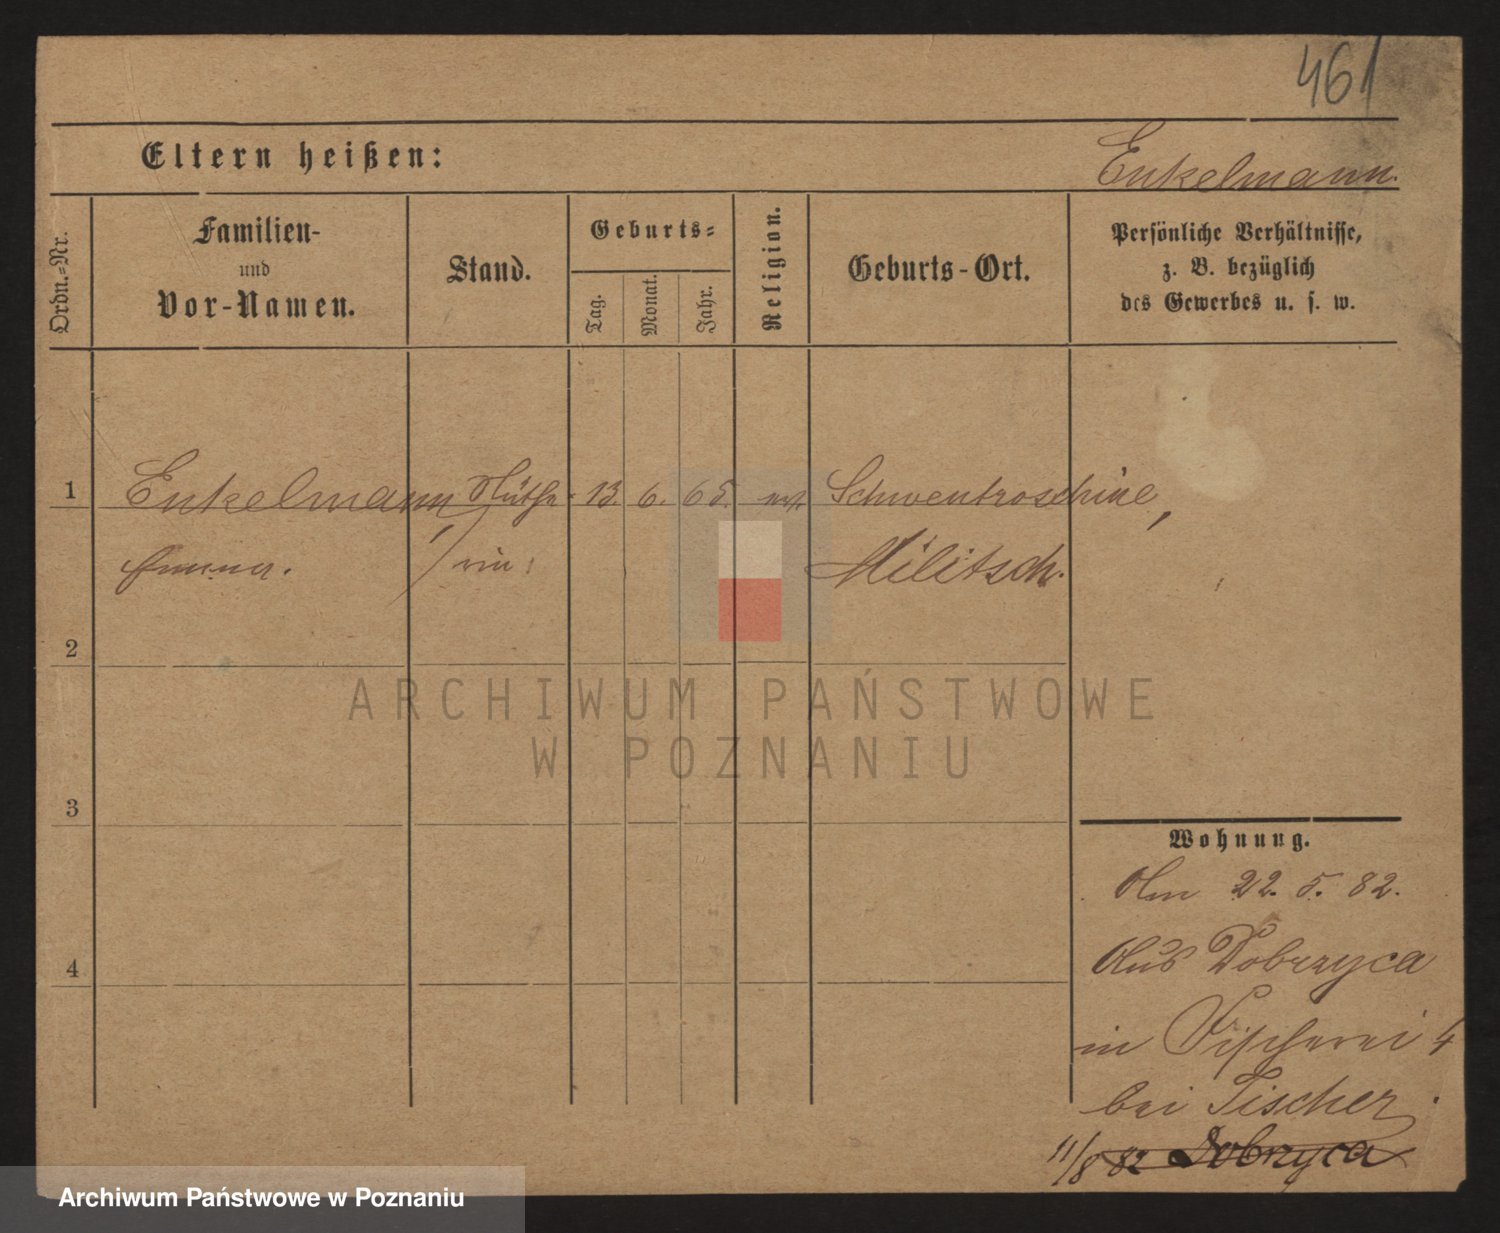 461
Eltern heißen:
Enkelmann.
Ordn.-Nr.
Familien-
und
Vor-Namen.
Stand.
Geburts-
Tag.
Monat.
Jahr.
Religion.
Geburts-Ort.
Persönliche Verhältnisse,
z. B. bezüglich
des Gewerbes u. s. w.
1
Enkelmann,
13. 6. 65.
Schwentroschine,
Emma.
Militsch.
2
ARCHIWUM PAŃSTWOWE
W POZNANIU
3
4
Wohnung.
Am 22. 5. 82.
Aus Dobrzyca
in Fischerei 4
bei Tischer.
11/8 82 Dobrzyca
Archiwum Państwowe w Poznaniu